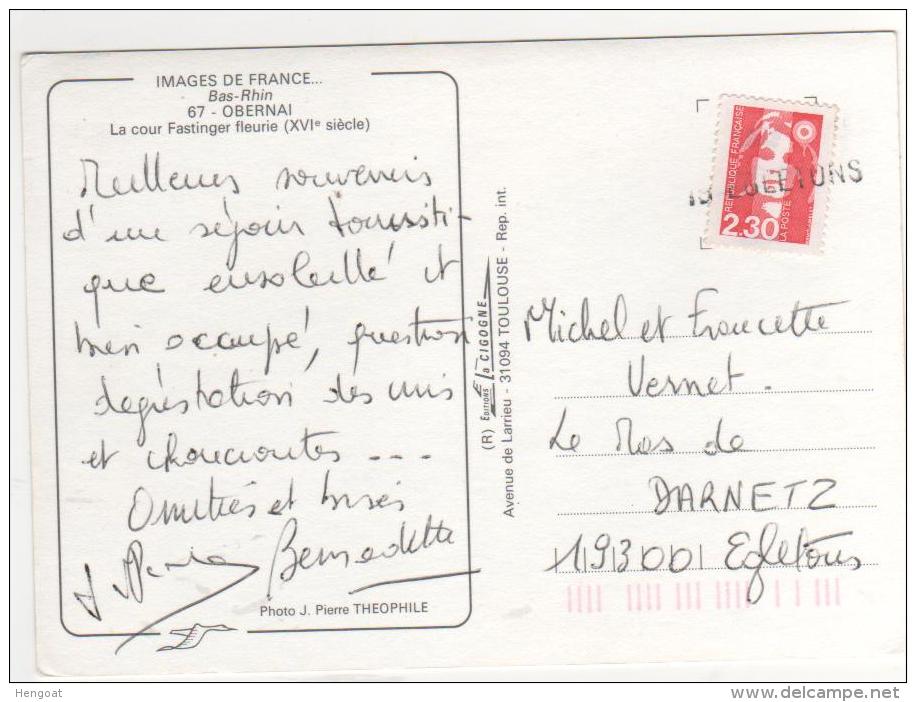 IMAGES DE FRANCE...
Bas-Rhin
67 - OBERNAI
La cour Fastinger fleurie (XVIe siècle)
Meilleurs souvenirs
d'un séjour touristi-
que ensoleillé et
bien occupé, question
dégustation des vins
et choucroutes ---
Amitiés et bises
Bernadette
Photo J. Pierre THEOPHILE
(R) EDITIONS la CIGOGNE
Avenue de Larrieu - 31094 TOULOUSE - Rep. int.
REPUBLIQUE FRANÇAISE
2.30
LA POSTE
19 EGLETONS
Michel et Francette
Vernet.
Le Mas de
DARNETZ
19300 Egletons
Hengoat
www.delcampe.net